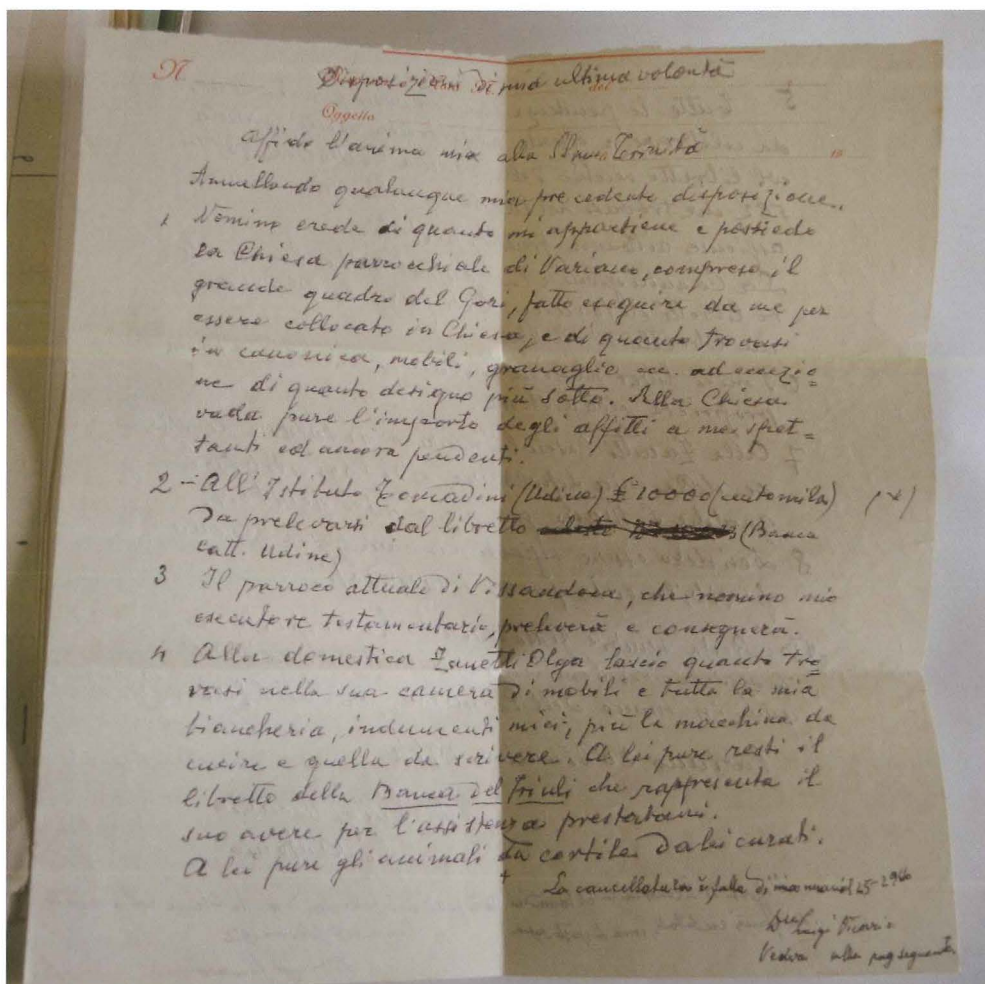 N
Disposizioni di mia ultima volontà
Oggetto
Affido l'anima mia alla SS.ma Trinità
Annullando qualunque mia precedente disposizione.
Nomino erede di quanto mi appartiene e possiedo
la Chiesa parrocchiale di Variano, compreso il
grande quadro del Gori, fatto eseguire da me per
essere collocato in Chiesa, e di quanto trovasi
in canonica, mobili, granaglie ecc. ad eccezio=
ne di quanto designo più sotto. Alla Chiesa
vada pure l'importo degli affitti a me spet=
tanti ed ancora pendenti.
2 - All'Istituto Tomadini (Udine) £ 10000 (
Da prelevarsi dal libretto (Banca
catt. Udine)
3 Il parroco attuale di Vissandone, che nomino mio
esecutore testamentario, preleverà e consegnerà.
4 Alla domestica Zanetti Olga lascio quanto tro=
vasi nella sua camera di mobili e tutta la mia
biancheria, indumenti miei, più la macchina da
cucire e quella da scrivere. A lei pure resti il
libretto della Banca del Friuli che rappresenta il
suo avere per l'assistenza prestatami.
A lei pure gli animali da cortile da lei curati.
La cancellatura è fatta di mia mano
Luigi
alla pag seguente